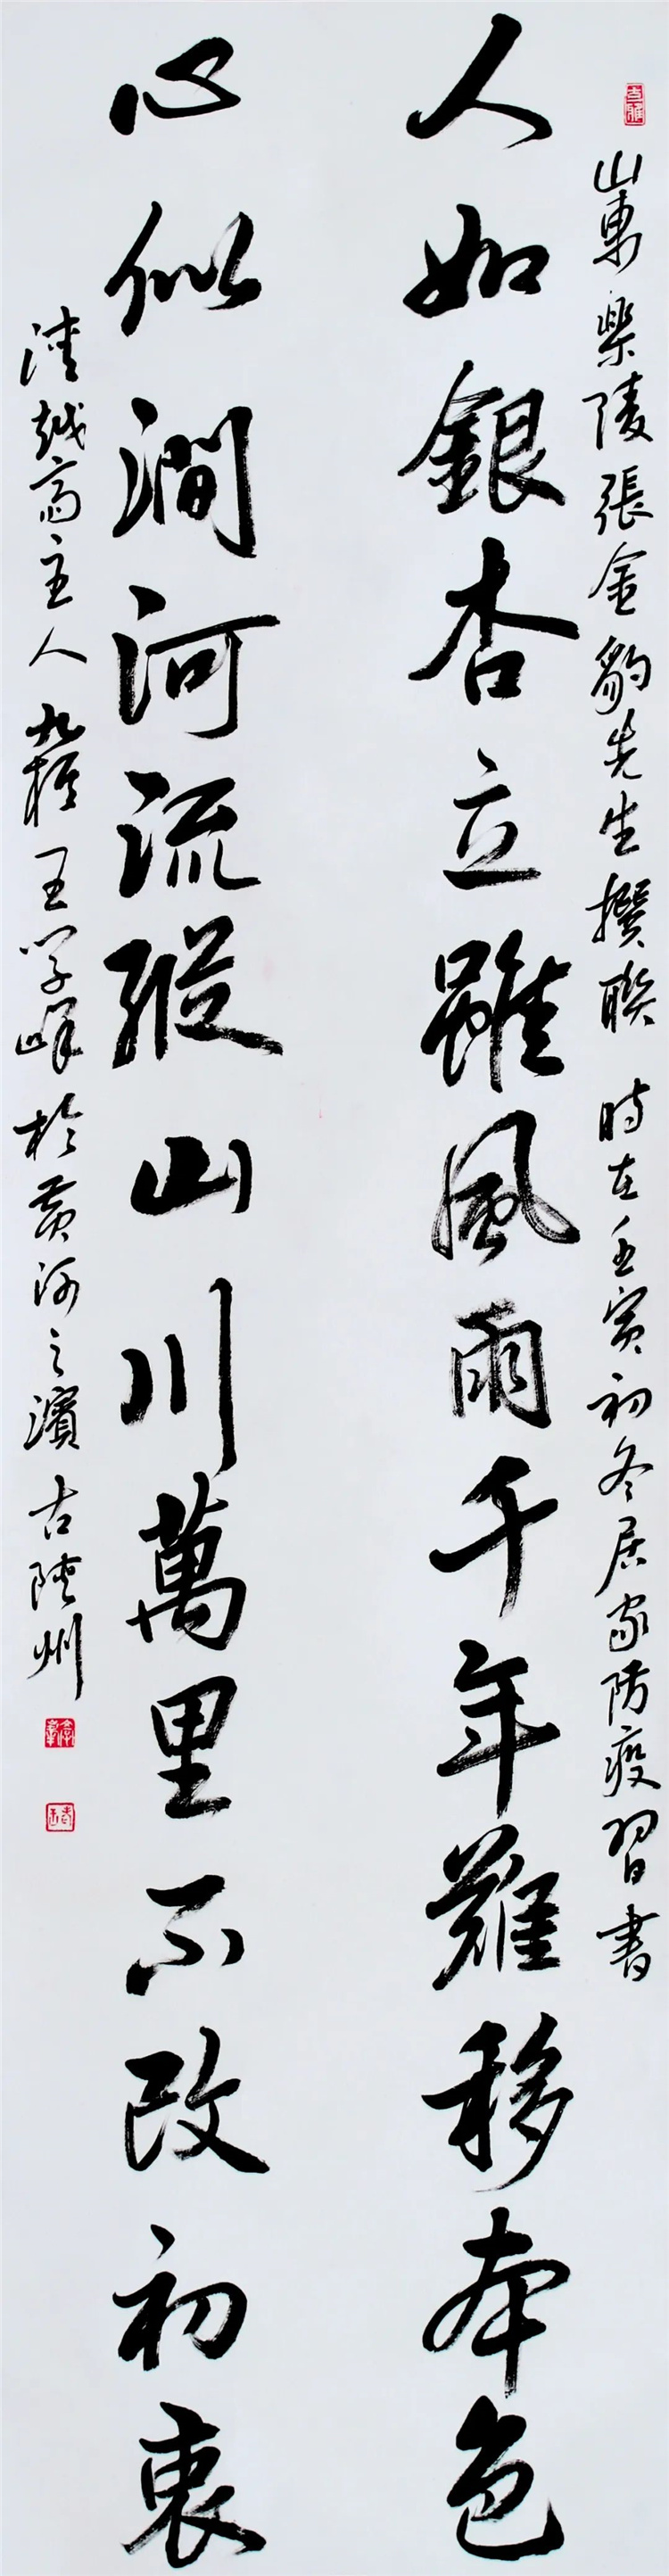 山東樂陵張金豹先生撰聯 時在壬寅初冬居家防疫習書
人如銀杏立雖風雨千年難移本色
心似澗河流縱山川萬里不改初衷
越斋主人 王学峰於黄河之濱古陝州